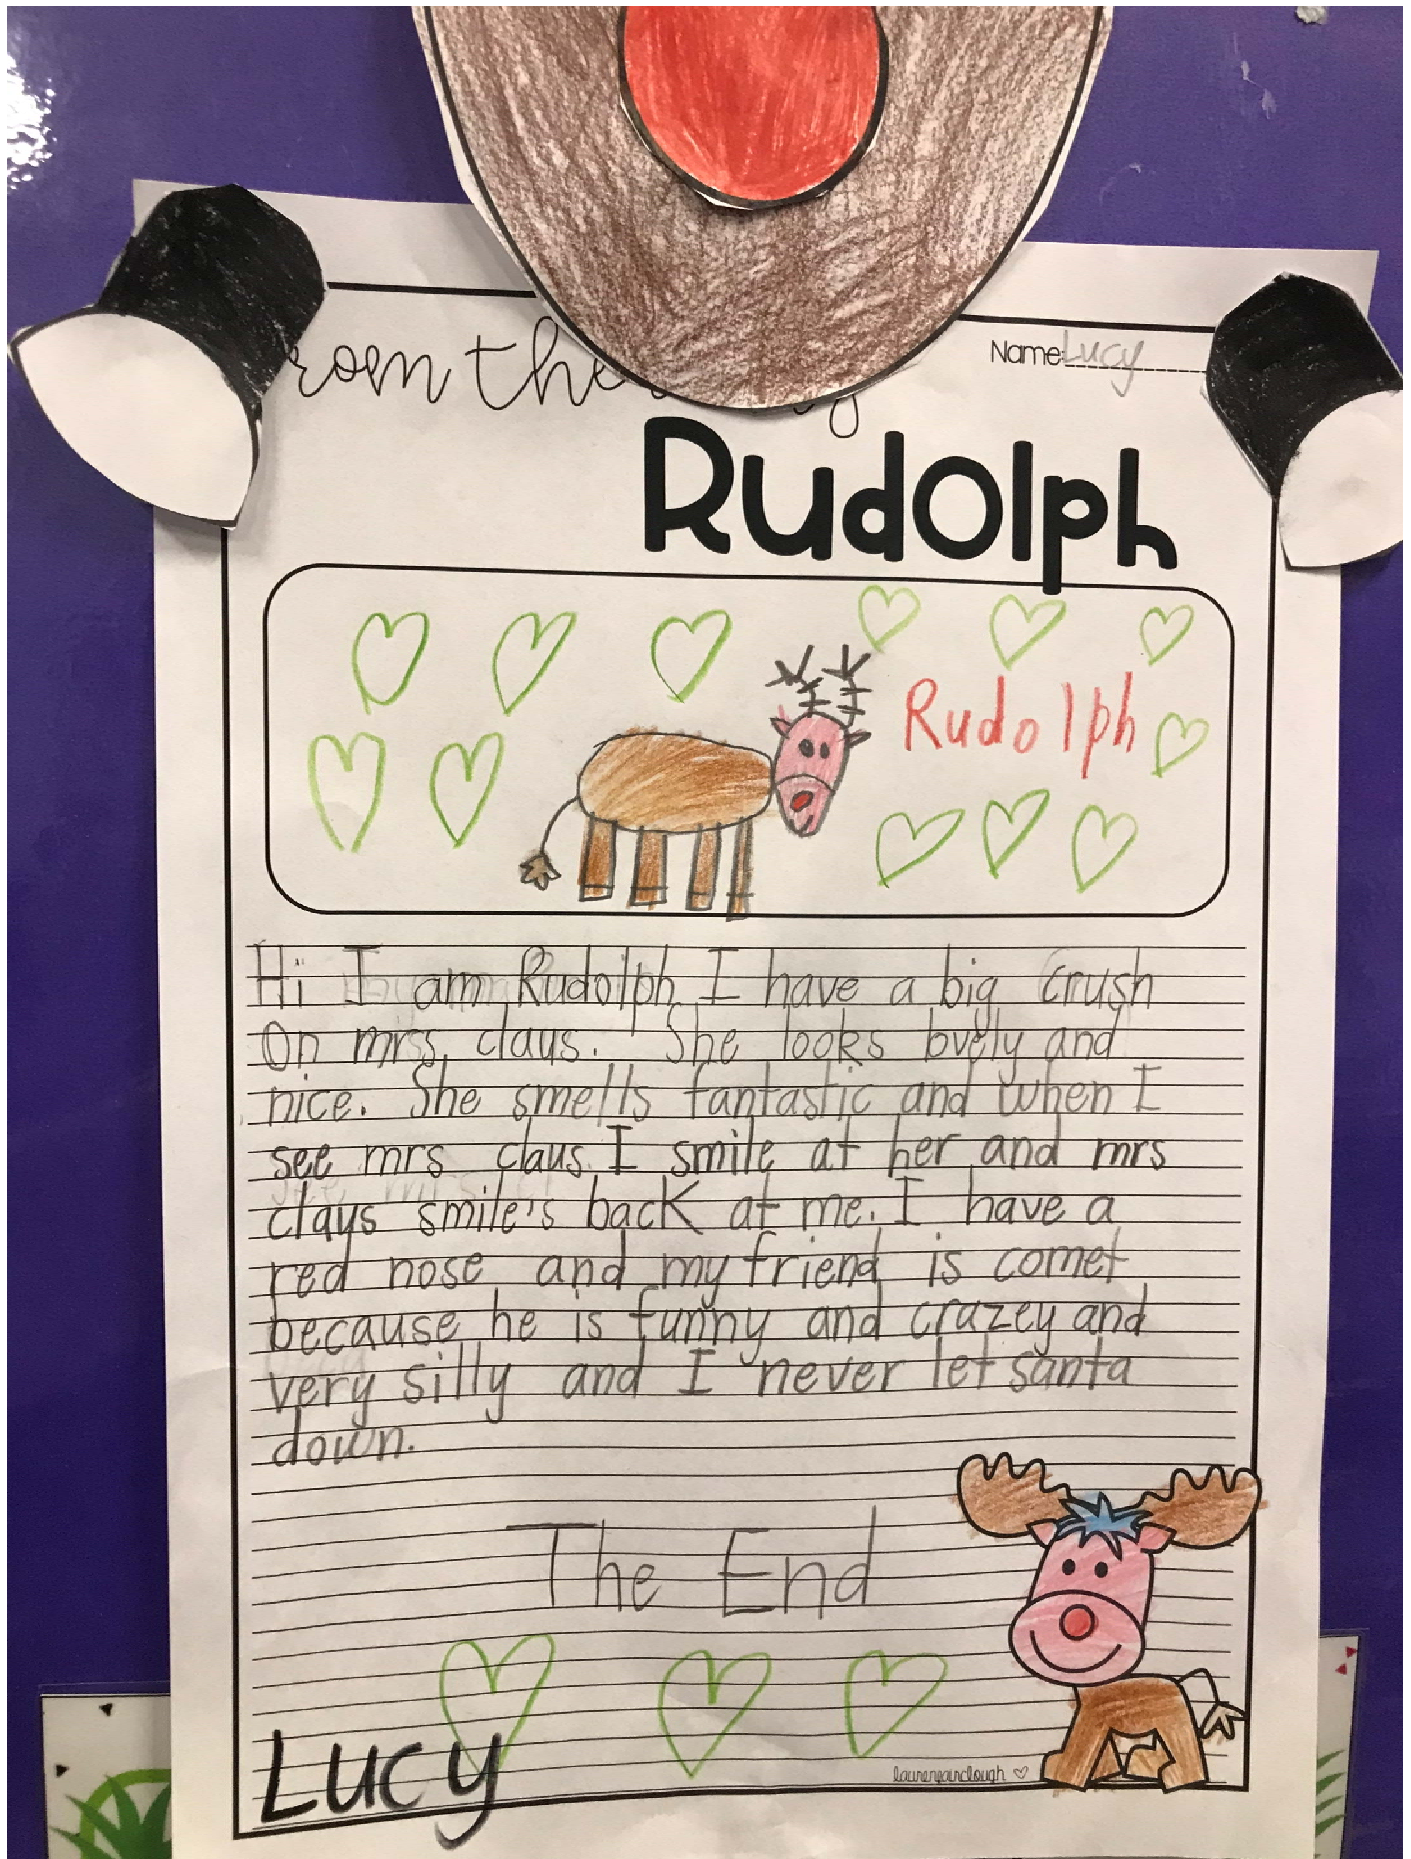 rom the
Name: Lucy
Rudolph
Rudolph
Hi I am Rudolph I have a big crush
On mrs claus. She looks lovely and
nice. She smells fantastic and when I
see mrs claus I smile at her and mrs
claus smile's back at me. I have a
red nose and my friend is comet
because he is funny and crazey and
very silly and I never let santa
down.
The End
Lucy
laurenfairclough